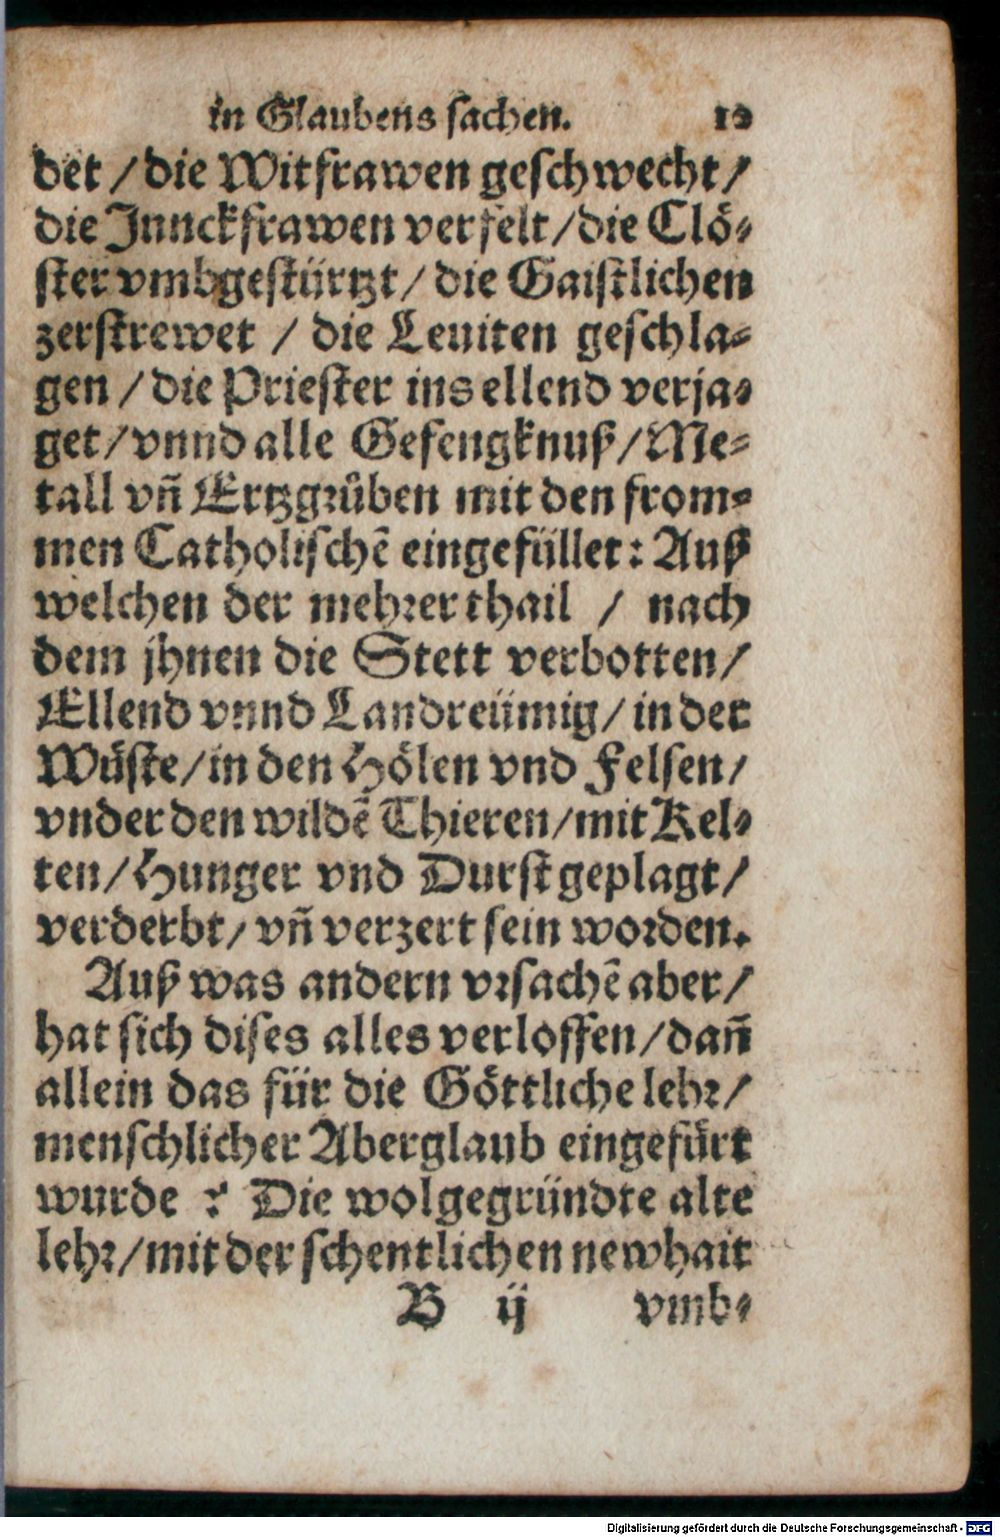 in Glaubens sachen. 10
det / die Witfrawen geschwecht /
die Jnnckfrawen verfelt / die Clö-
ster vmbgestürtzt / die Gaistlichen
zerstrewet / die Leuiten geschla-
gen / die Priester ins ellend verja-
get / vnnd alle Gefengknuß / Me-
tall vñ Ertzgrůben mit den from-
men Catholischẽ eingefüllet: Auß
welchen der mehrer thail / nach
dem jhnen die Stett verbotten /
Ellend vnnd Landreümig / in der
Wüste / in den Hölen vnd Felsen /
vnder den wildẽ Thieren / mit Kel-
ten / Hunger vnd Durst geplagt /
verderbt / vñ verzert sein worden.
Auß was andern vrsachẽ aber /
hat sich dises alles verloffen / dañ
allein das für die Göttliche lehr /
menschlicher Aberglaub eingefürt
wurde ? Die wolgegründte alte
lehr / mit der schentlichen newhait
B ij vmb-
Digitalisierung gefördert durch die Deutsche Forschungsgemeinschaft - DFG